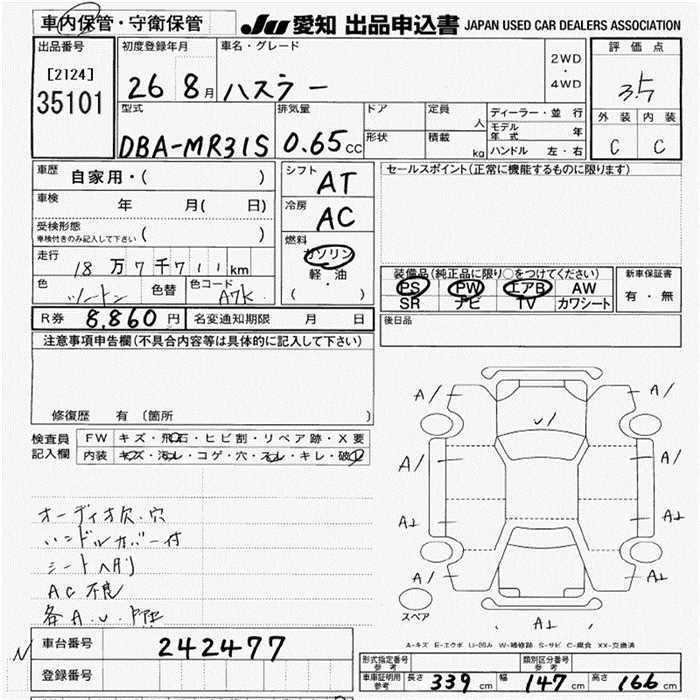 車内保管・守衛保管 JU 愛知 出品申込書 JAPAN USED CAR DEALERS ASSOCIATION
出品番号 [2124] 35101
初度登録年月 26 8月
車名・グレード ハスラー
2WD・4WD
評価点 3.5
外装 内装
C C
型式 DBA-MR31S
排気量 0.65 CC
ドア 形状
定員 人
積載 kg
ディーラー・並行
モデル年式 年
ハンドル 左・右
車歴 自家用・( )
車検 年 月( 日)
受検形態 車検付きのみ記入して下さい ( )
走行 18万7千711km
色 ツートン 色替 色コード A7K
シフト AT
冷房 AC
燃料 ガソリン
軽・油
( )
セールスポイント(正常に機能するものに限ります)
装備品(純正品に限り○をつけてください)
PS PW エアB AW
SR ナビ TV カワシート
新車保証書
有・無
R券 8,860円 名変通知期限 月 日
後日品
注意事項申告欄(不具合内容等は具体的に記入して下さい)
修復歴 有 (箇所 )
検査員記入欄
FW キズ・飛石・ヒビ割・リペア跡・X要
内装 キズ・汚レ・コゲ・穴・スレ・キレ・破レ
オーディオ欠・穴
ハンドルカバー付
シート
AC不良
各A.U.
A/ A/
A/ A/
A1 A1
A/ A1
スペア
A1
A-キズ E-エクボ U-凹み W-補修跡 S-サビ C-腐食 XX-交換済
N
車台番号 242477
登録番号
形式指定番号 参考
類別区分番号 参考
車庫証明用 参考 長さ 339cm 幅 147cm 高さ 166cm